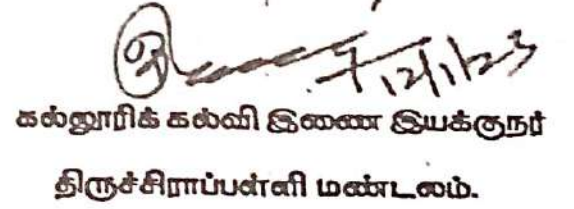 12/1/23
கல்லூரிக் கல்வி இணை இயக்குநர்
திருச்சிராப்பள்ளி மண்டலம்.